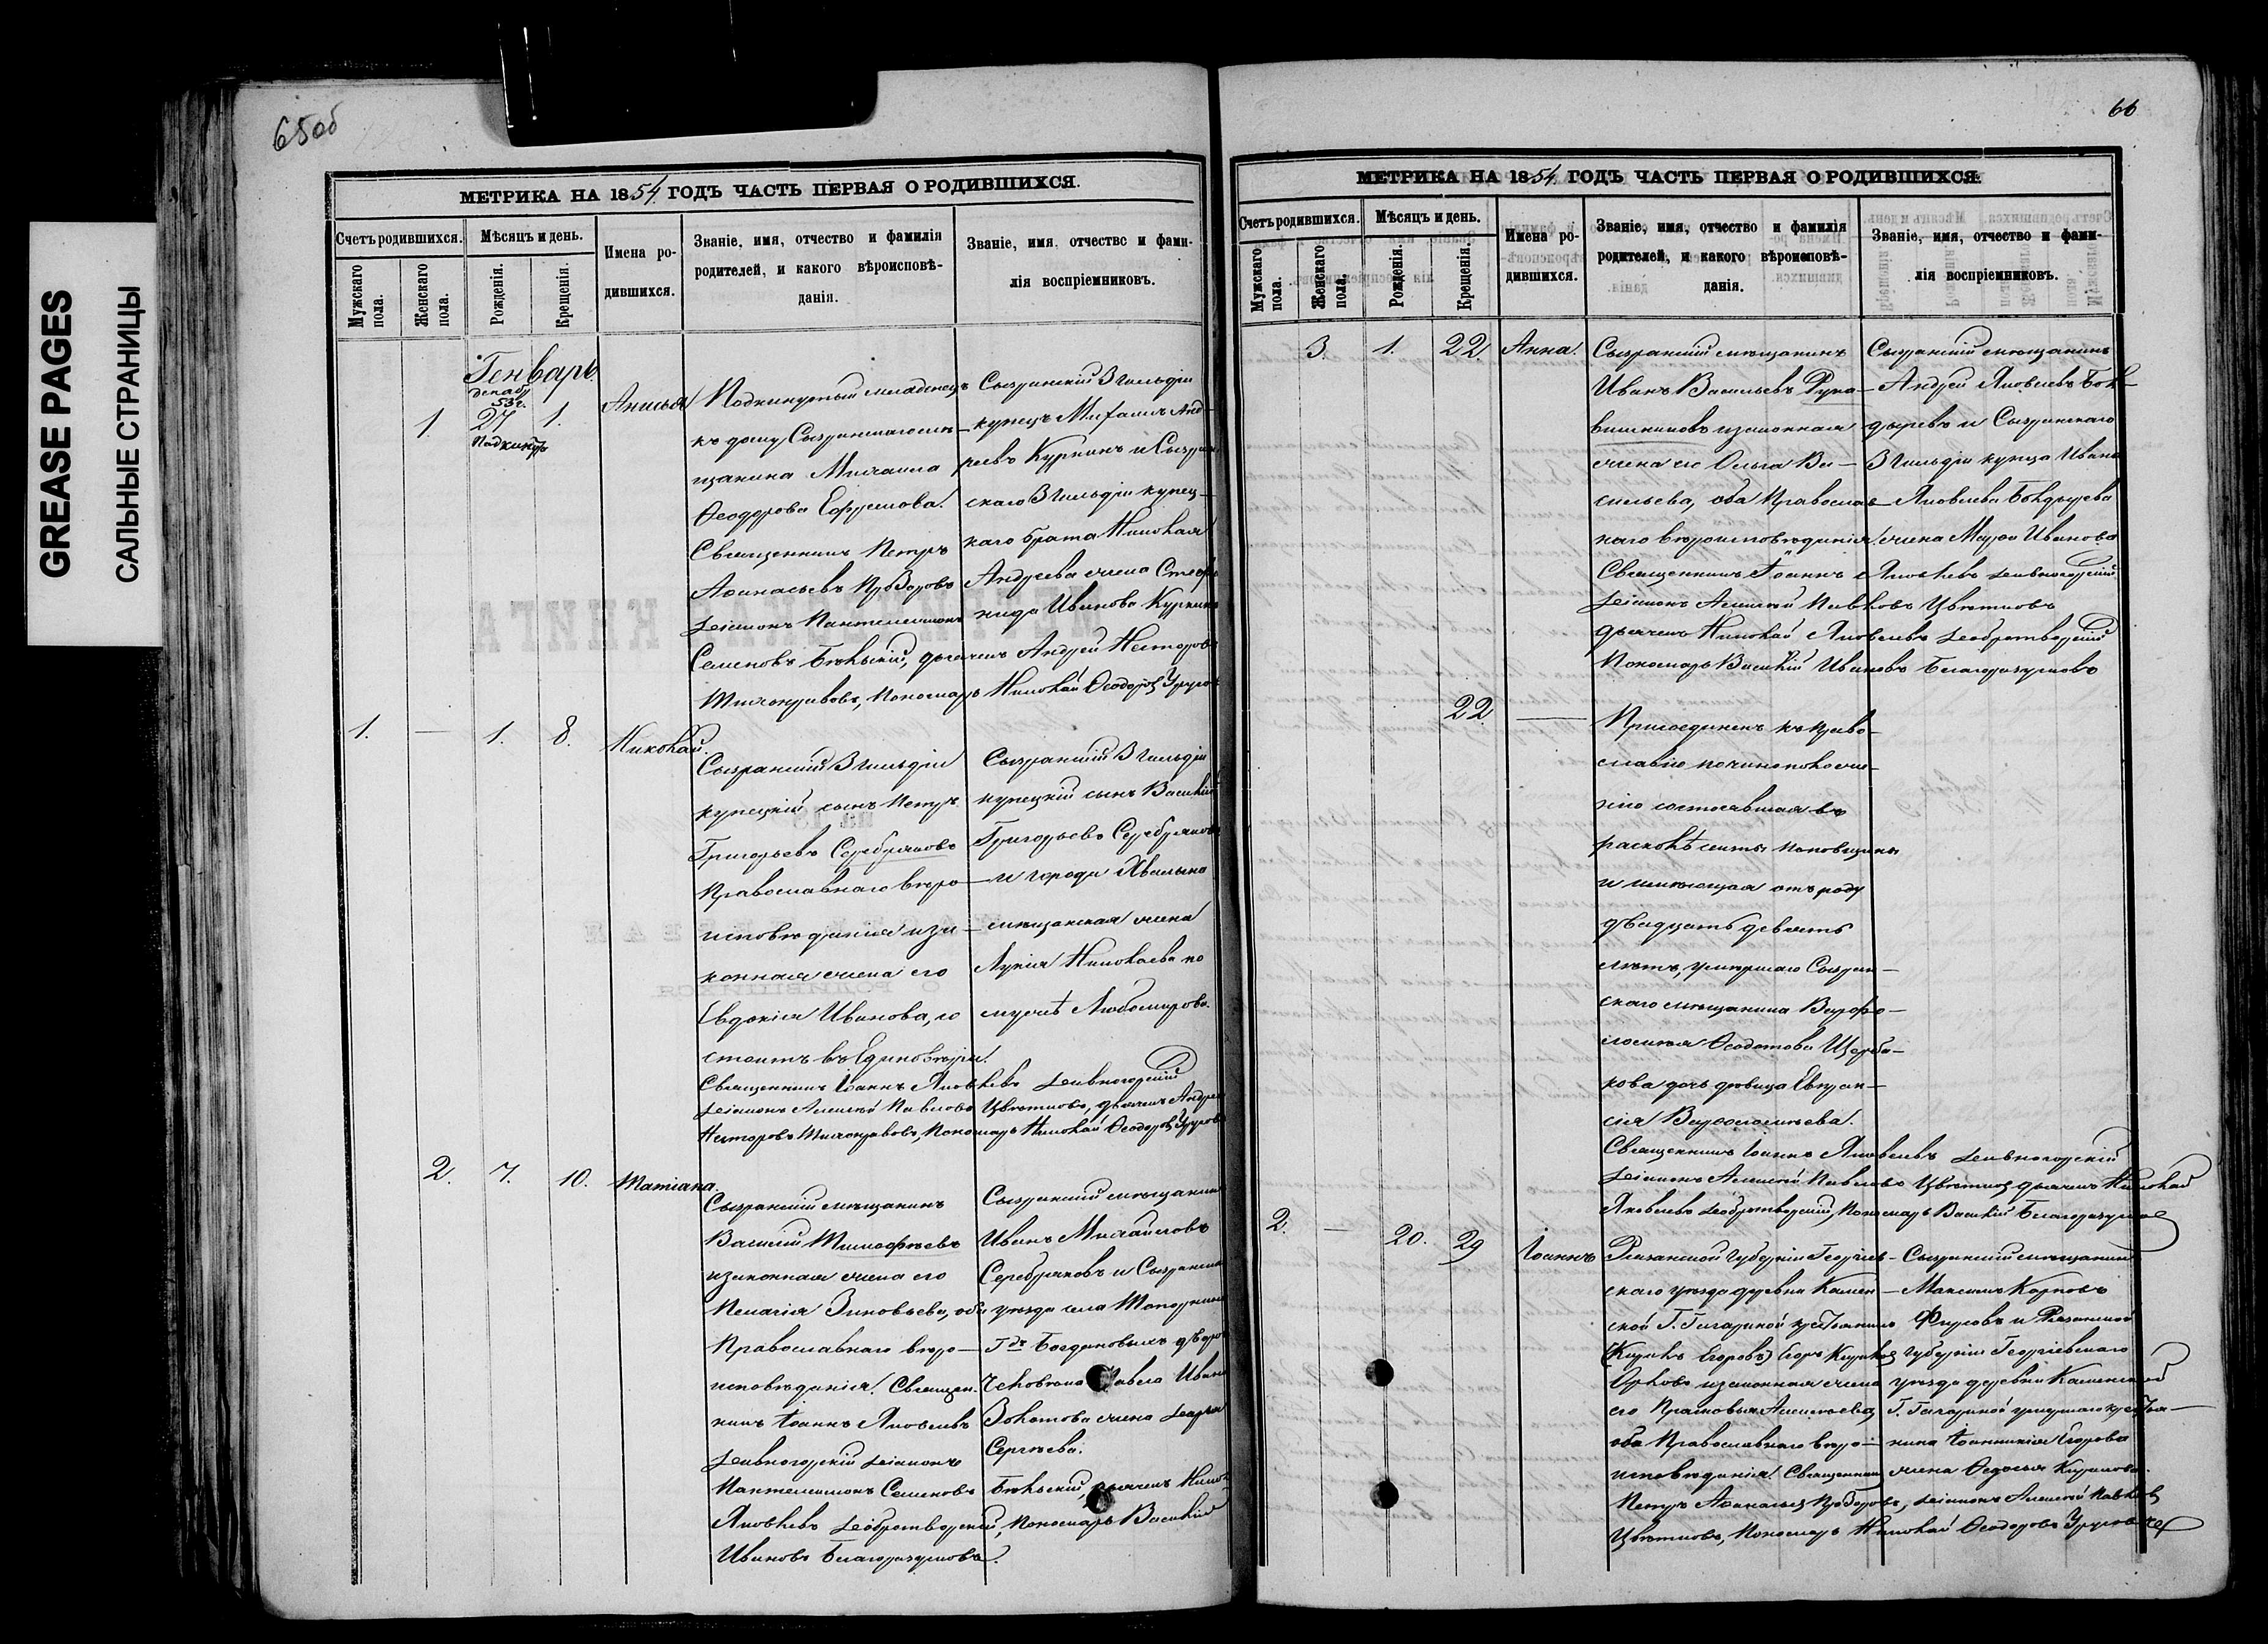 GREASE PAGES
САЛЬНЫЕ СТРАНИЦЫ
65об
МЕТРИКА НА 1854 ГОДЪ ЧАСТЬ ПЕРВАЯ О РОДИВШИХСЯ.
Счетъ родившихся.
Мѣсяцъ и день.
Имена ро-
дившихся.
Званіе, имя, отчество и фамилія
родителей, и какого вѣроисповѣ-
данія.
Званіе, имя, отчество и фами-
лія воспріемниковъ.
Мужскаго
пола.
Женскаго
пола.
Рожденія.
Крещенія.
Генварь.
декабр
53 г.
1. 27 1. Анисья
Подкинутый младенецъ
къ дому Сызранскаго мѣ-
щанина Михаила
Ѳеодорова Ефремова.
Священникъ Петръ
Аѳанасьевъ
Діаконъ Пантелеимонъ
Семеновъ Бѣльскій, дьячекъ Андрей Несторовъ
Пономарь Николай Ѳеодоровъ
Сызранскій 3 гильдіи
купецъ Михаилъ Анд-
реевъ Куркинъ и Сызран
скаго 3 гильдіи купец-
каго брата Николая
Андреева жена Стефа
нида Иванова Куркина
1. — 1. 8. Николай.
Сызранскій 3 гильдіи
купецкій сынъ Петръ
Григорьевъ Серебряковъ
Православнаго вѣро-
исповѣданія и за-
конная жена его
Евдокія Иванова, со
стоитъ въ Единовѣріи.
Священникъ Іоаннъ Яковлевъ Дивногорскій
Діаконъ Алексѣй Павловъ Цвѣтковъ, дьячекъ Андрей
Несторовъ Пономарь Николай Ѳеодоровъ
Сызранскій 3 гильдіи
купецкій сынъ Василій
Григорьевъ Серебряковъ
и города Хвалына
мѣщанская жена
Лукія Николаева по
мужѣ Любомирова.
2. 7. 10. Татіана.
Сызранскій мѣщанинъ
Василій Тимоѳѣевъ
и законная жена его
Пелагія Зиновьева, оба
Православнаго вѣро-
исповѣданія. Священ.
никъ Іоаннъ Яковлевъ
Дивногорскій Діаконъ
Пантелеимонъ Семеновъ Бѣльскій, дьячекъ Никол
Яковлевъ Добротворскій, Пономарь Василій
Иванов Благоразумовъ.
Сызранскій мѣщанин
Иванъ Михайловъ
Серебряковъ и Сызранска
уѣзда села
Гдъ Богдановыхъ дворо
Павла Ивано
Золотова жена Дарья
Сергѣева.
66
МЕТРИКА НА 1854 ГОДЪ ЧАСТЬ ПЕРВАЯ О РОДИВШИХСЯ.
Счетъ родившихся.
Мѣсяцъ и день.
Имена ро-
дившихся.
Званіе, имя, отчество и фамилія
родителей, и какого вѣроисповѣ-
данія.
Званіе, имя, отчество и фами-
лія воспріемниковъ.
Мужскаго
пола.
Женскаго
пола.
Рожденія.
Крещенія.
3. 1. 22. Анна.
Сызранскій мѣщанинъ
Иванъ Васильевъ Рука-
вишниковъ и законная
жена его Ольга Ва-
сильева, оба Православ-
наго вѣроисповѣданія.
Священникъ Іоаннъ Яковлевъ Дивногорскій
Діаконъ Алексѣй Павловъ Цвѣтковъ
дьячекъ Николай Яковлевъ Добротворскій
Пономарь Василій Ивановъ Благоразумовъ
Сызранскій мѣщанинъ
Андрей Яковлевъ Бон-
дыревъ и Сызранскаго
3 гильдіи купца Ивана
Яковлева Бондырева
жена Марѳа Иванова
22. —
Присоединенъ къ Право-
славію
состоявшая въ
расколѣ секты поповщины
и имѣющая отъ роду
двадцать девять
лѣтъ, умершаго Сызран-
скаго мѣщанина Варѳо-
ломея Ѳеодотова Щерба-
кова дочь дѣвица Евпра-
ксія Варѳоломѣева.
Священникъ Іоаннъ Яковлевъ Дивногорскій
Діаконъ Алексѣй Павловъ Цвѣтковъ дьячекъ Николай
Яковлевъ Добротворскій, Пономарь Василій Благоразумовъ
2. — 20. 29 Іоаннъ
Рязанской Губерніи
скаго уѣзда деревни Камен-
ской Г. Гагариной крестьянинъ
(Карпъ Егоровъ) Егоръ
Орловъ и законная жена
его Прасковья Алексѣева
оба Православнаго вѣро-
исповѣданія. Священникъ
Петръ Аѳанасьев Діаконъ Алексѣй Павлов
Цвѣтковъ, Пономарь Николай Ѳеодоровъ
Сызранскій мѣщанинъ
Максимъ Карповъ
Фирсовъ и Рязанской
губерніи
уѣзда деревни Каменской
Г. Гагариной умершаго крестья-
нина Іоанникія Егорова
жена Ѳедосья